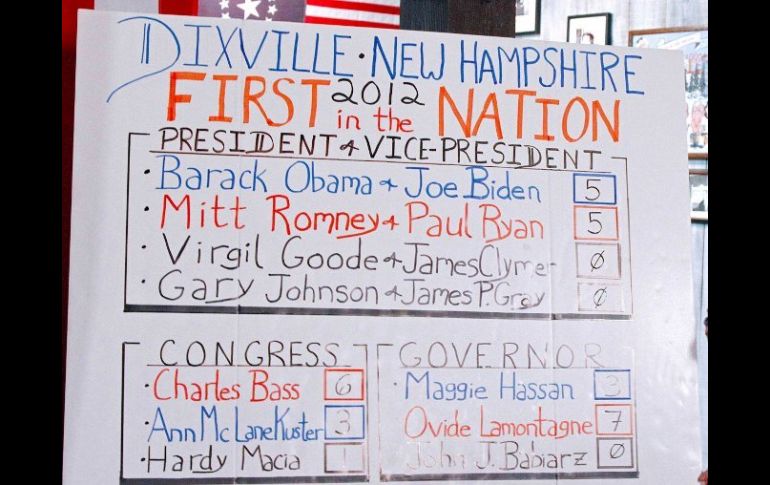 DIXVILLE · NEW HAMPSHIRE
FIRST 2012 in the NATION
PRESIDENT & VICE-PRESIDENT
· Barack Obama & Joe Biden 5
· Mitt Romney & Paul Ryan 5
· Virgil Goode & James Clymer 0
· Gary Johnson & James P. Gray 0
CONGRESS
· Charles Bass 6
· Ann McLane Kuster 3
· Hardy Macia 1
GOVERNOR
· Maggie Hassan 3
Ovide Lamontagne 7
John J. Babiarz 0